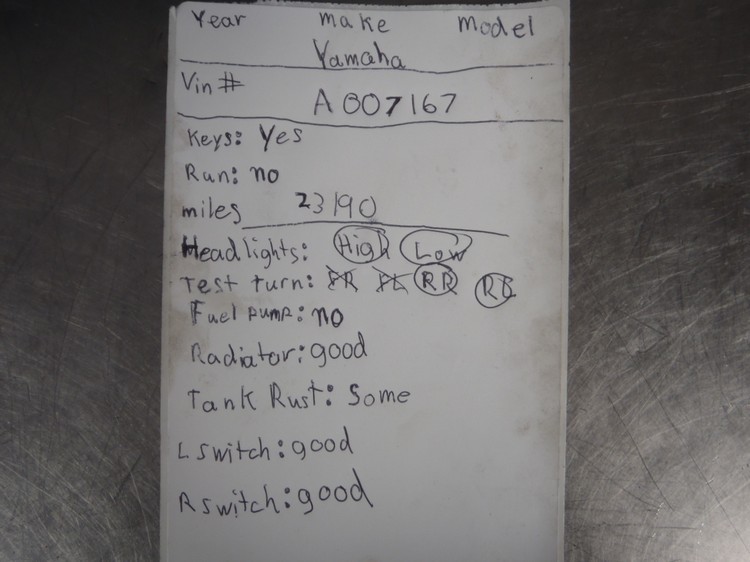 Year make Model
Yamaha
Vin #
A007167
Keys: Yes
Run: no
miles 23190
Headlights: High Low
Test turn: FR FL RR RL
Fuel pump: no
Radiator: good
Tank Rust: Some
L switch: good
R switch: good